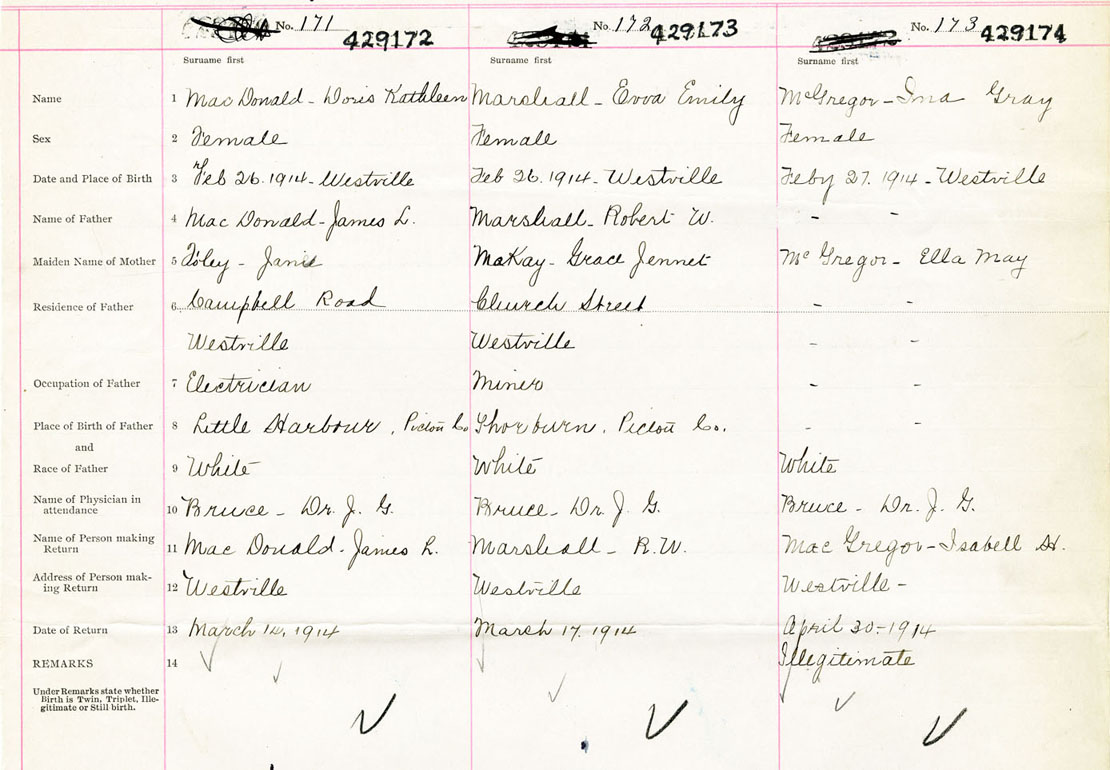 No. 171 429172 No. 172 429173 No. 173 429174
Surname first Surname first Surname first
Name 1 Mac Donald - Doris Kathleen Marshall - Evva Emily McGregor - Ina Gray
Sex 2 Female Female Female
Date and Place of Birth 3 Feb 26. 1914 - Westville Feb 26. 1914 - Westville Feby 27. 1914 - Westville
Name of Father 4 Mac Donald - James L. Marshall - Robert W. - -
Maiden Name of Mother 5 Foley - Janie McKay - Grace Jennet Mc Gregor - Ella May
Residence of Father 6 Campbell Road Church Street - -
Westville Westville - -
Occupation of Father 7 Electrician Miner - -
Place of Birth of Father 8 Little Harbour, Pictou Co Thorburn, Pictou Co. - -
and
Race of Father 9 White White White
Name of Physician in
attendance 10 Bruce - Dr. J. G. Bruce - Dr. J. G. Bruce - Dr. J. G.
Name of Person making
Return 11 Mac Donald - James L. Marshall - R. W. Mac Gregor - Isabell H.
Address of Person mak-
ing Return 12 Westville Westville Westville -
Date of Return 13 March 14, 1914 March 17. 1914 April 30 - 1914
REMARKS 14 Illegitimate
Under Remarks state whether
Birth is Twin, Triplet, Ille-
gitimate or Still birth.